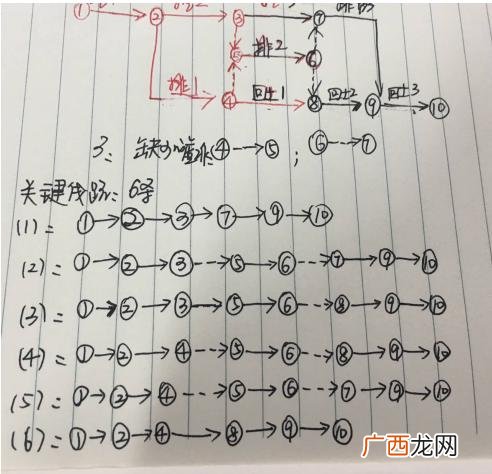 ① ② ③ ⑦
⑤ 排2 ⑥
排1 ④ 回土1 ⑧ 回土2 ⑨ 回土3 ⑩
3: 缺少 ④--→⑤; ⑥--→⑦
关键线路: 6条
(1)= ①→②→③→⑦→⑨→⑩
(2)= ①→②→③--→⑤→⑥--→⑦→⑨→⑩
(3)= ①→②→③--→⑤→⑥--→⑧→⑨→⑩
(4)= ①→②→④--→⑤→⑥--→⑧→⑨→⑩
(5)= ①→②→④--→⑤→⑥--→⑦→⑨→⑩
(6)= ①→②→④→⑧→⑨→⑩
广西龙网